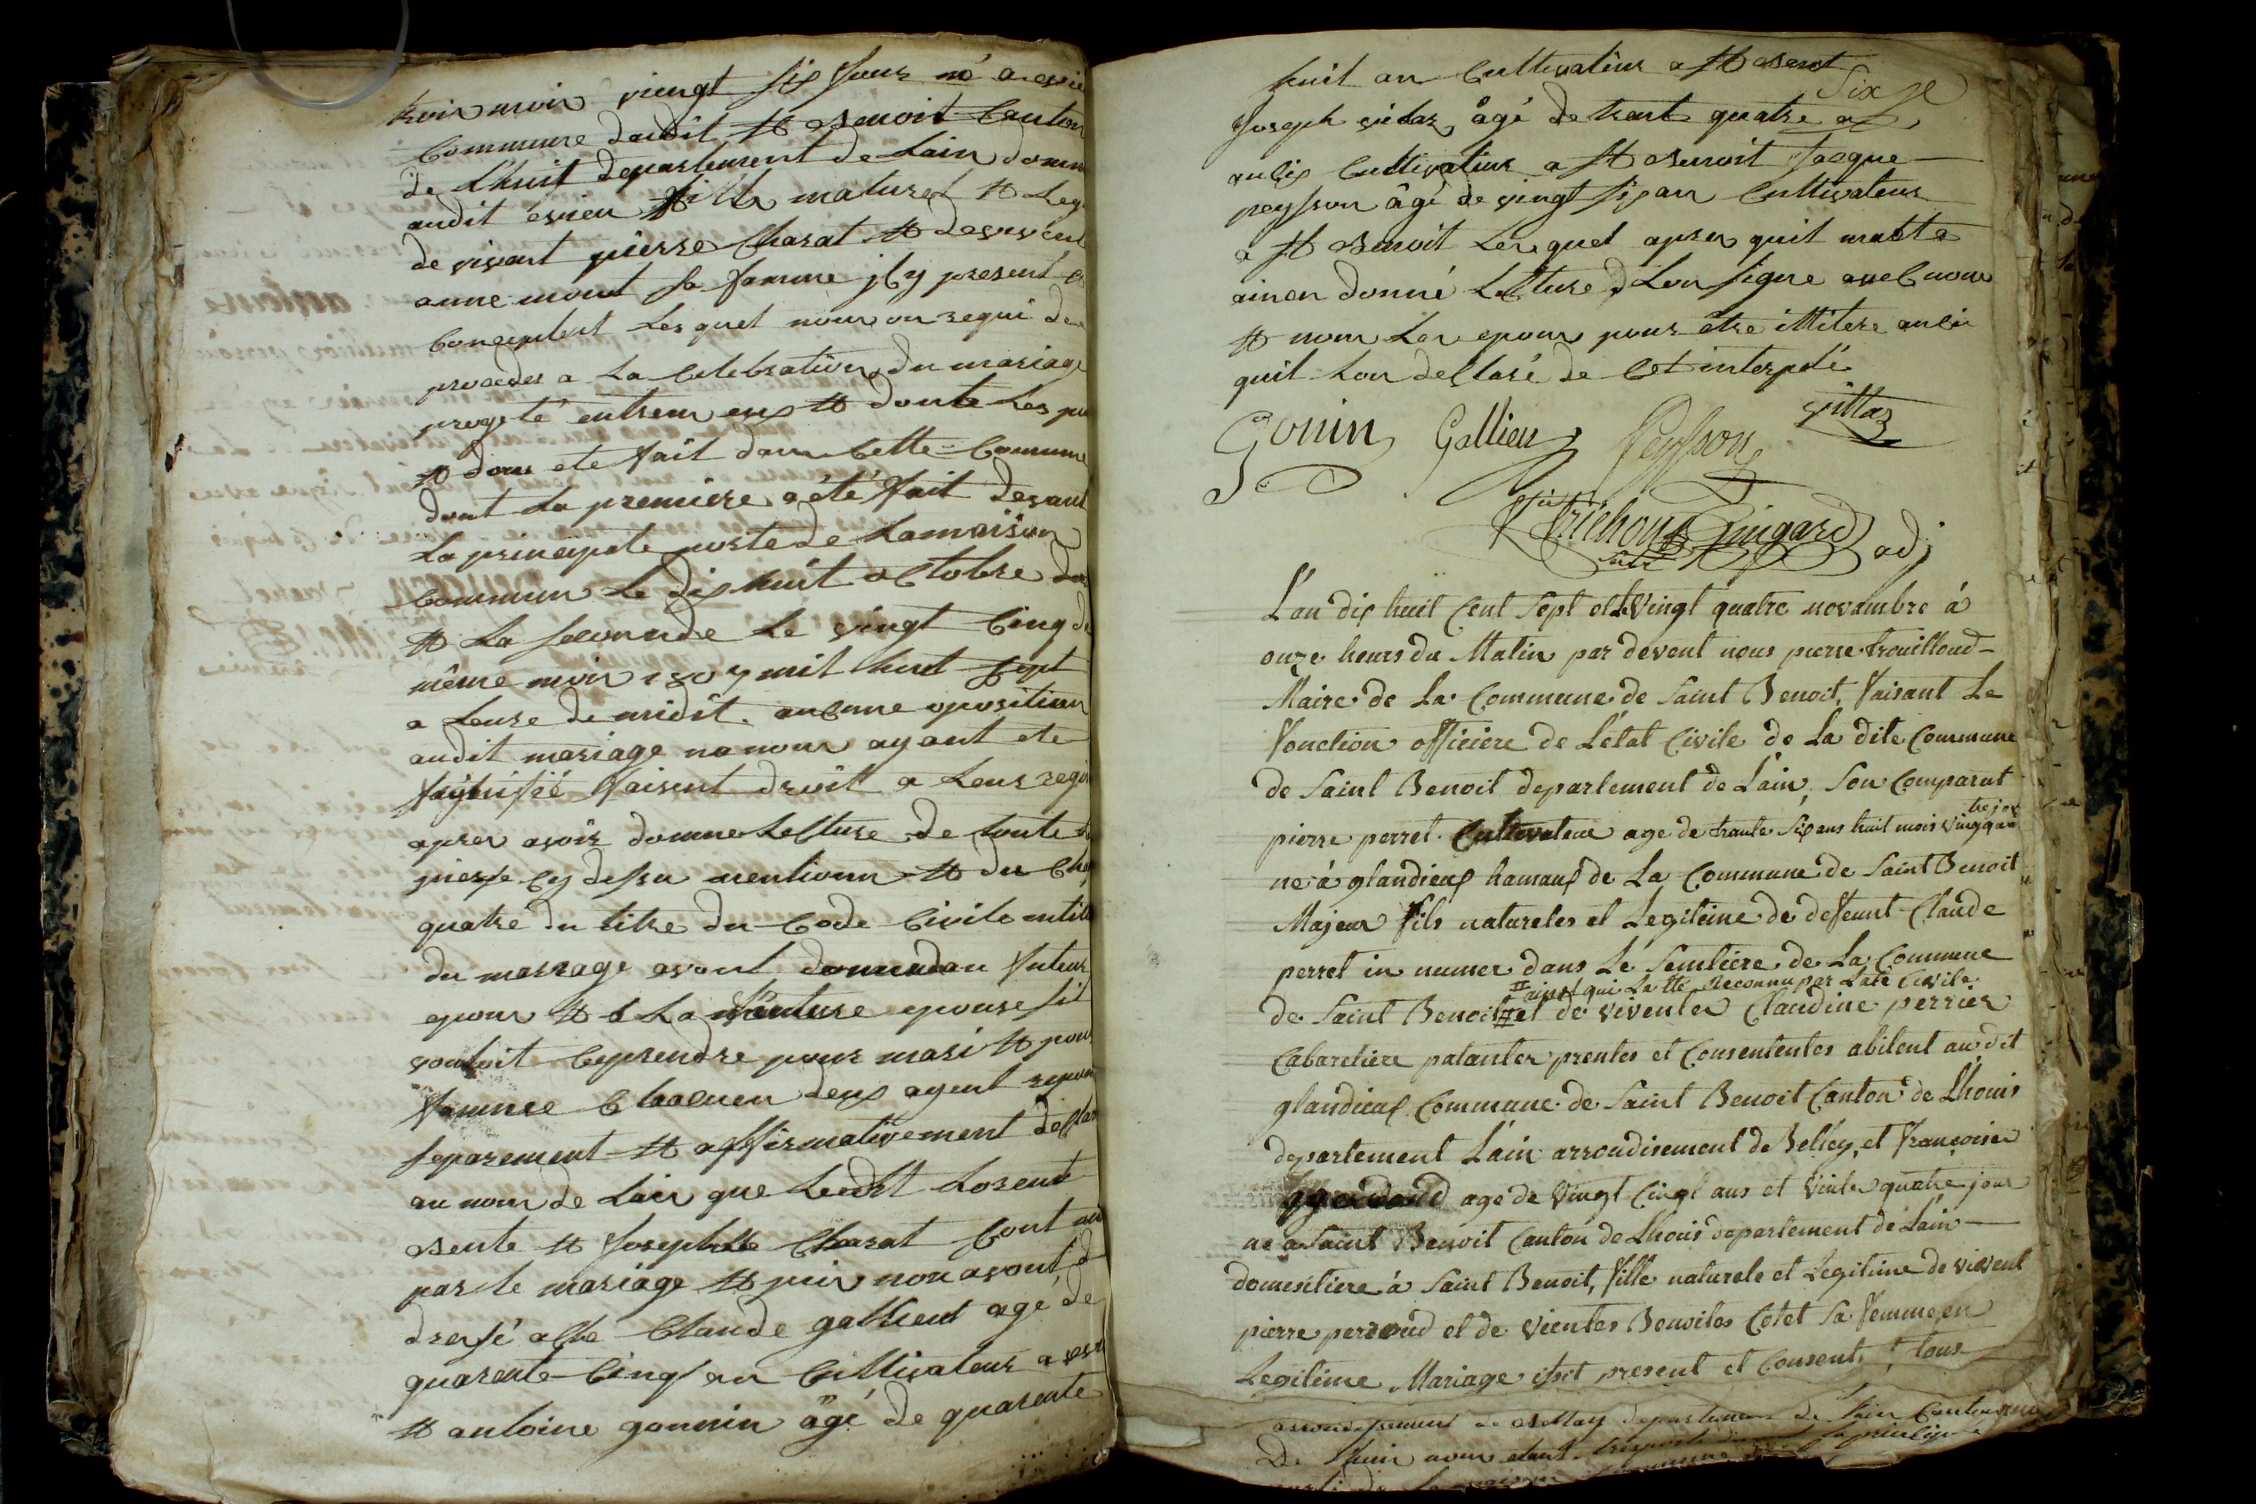 trois mois vingt six jour né a evieu
Commune dudit st Benoit Canton
de Lhuis departement de Lain domm
audit evieu fille naturel et Leg
de vivant pierre Charat et devivent
anne mont sa famme ily present et
Consentent Lesquel nous on requi de
proceder a La Celebration du mariage
progeté entreur eux et donte Les pu
dont La premiere a été fait devant
La principale porte de Lamaison
Commun Le dix huit octobre
et La seconde Le vingt Cinq du
même mois 1807 mil huit sept
a Leure de midit. aucune oposition
audit mariage nanous ayant ete
faisent droit a Leur requi
apres avoir donne Lecture de toute
piesse Cy dessu mentionn et du Cha
quatre du titre du Code Civile intitu
du mariage avont demandau futeur
epour et a La feuture epouse sil
vouloit Ceprendre pour mari et pour
famme Chacuen deux ayent repon
separement et affirmativement declar
au nom de Lais que Ledit Losent
Bente et Josephte Charat sont uni
par le mariage et puis nou avont
dressé acte Claude gallient agé de
quarente Cinq an Cultivateur a
et antoine gonnin âgé de quarente
huit an Cultivateur a st Benoit
Six
Joseph vittaz âgé de trent quatre
ausis Cultivateur a st Benoit Jacque
peysson âgé de vingt six an Cultivateur
a st Benoit Lesquel apres quil
ainen donné Lecture Lon signe avec nous
et non Les epour pour être illitere
quil Lon declaré de Cet interpelé
Gonin Gallien Peysson vittaz
Guigard adj
L'an dix huit Cent Sept et Le Vingt quatre novambre á
onze heurs du Matin par devent nous pierre trouilloud
Maire de La Commune de Saint Benoit, faisant Le
fonction officiere de L'état Civile de La dite Commune
de Saint Benoit departement de L'ain, Son Comparut
pierre perret Cultivateur age de trante Six ans huit mois vingt
ne á glandieux hamaux de La Commune de Saint Benoit
Majeur fils natureles et Legitime de defeunt Claude
perret in numer dans Le Semtiere de La Commune
ainsi qui La été Reconnu par Late Civile
de Saint Benoit et de viventes Claudine perrier
Cabaretiere patanter prentes et Consententes abitent audit
glandieux Commune de Saint Benoit Canton de Lhouis
departement L'ain arrondisement de Belley, et françoise
age de Vingt Cingt ans et Vinte quatre jour
ne á Saint Benoit Canton de Lhouis departement de Lain
domesitiere á Saint Benoit, fille naturele et Legitime de vivent
pierre perroud et de vientes Benoites Cotet Sa femme en
Legitime Mariage isit present et Consent, tous